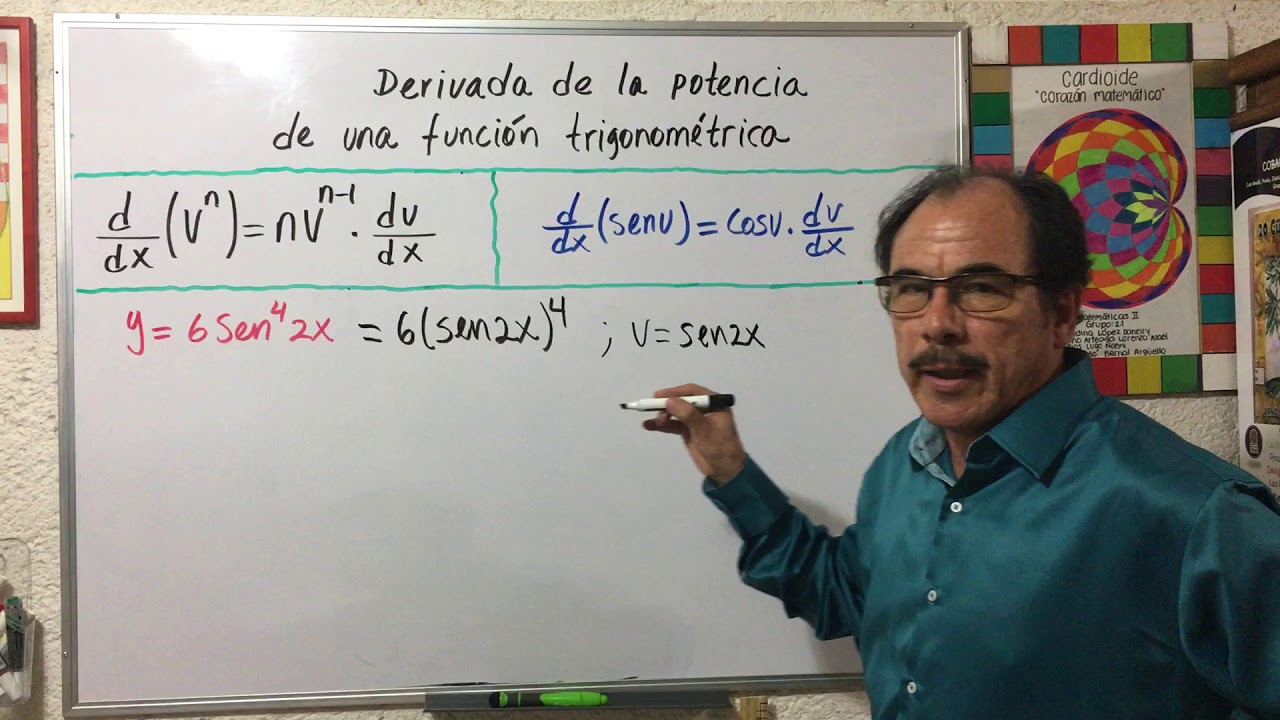 Derivada de la potencia
de una función trigonométrica
d/dx (vⁿ) = nvⁿ⁻¹ · dv/dx
d/dx (senv) = cosv · dv/dx
y = 6 Sen⁴2x = 6(sen2x)⁴ ; v = sen2x
Cardioide
"corazón matemático"
Matemáticas II
Grupo: 21
López
Arteaga Lorenzo
Lugo Noemi
Bernal Argüello
COBA